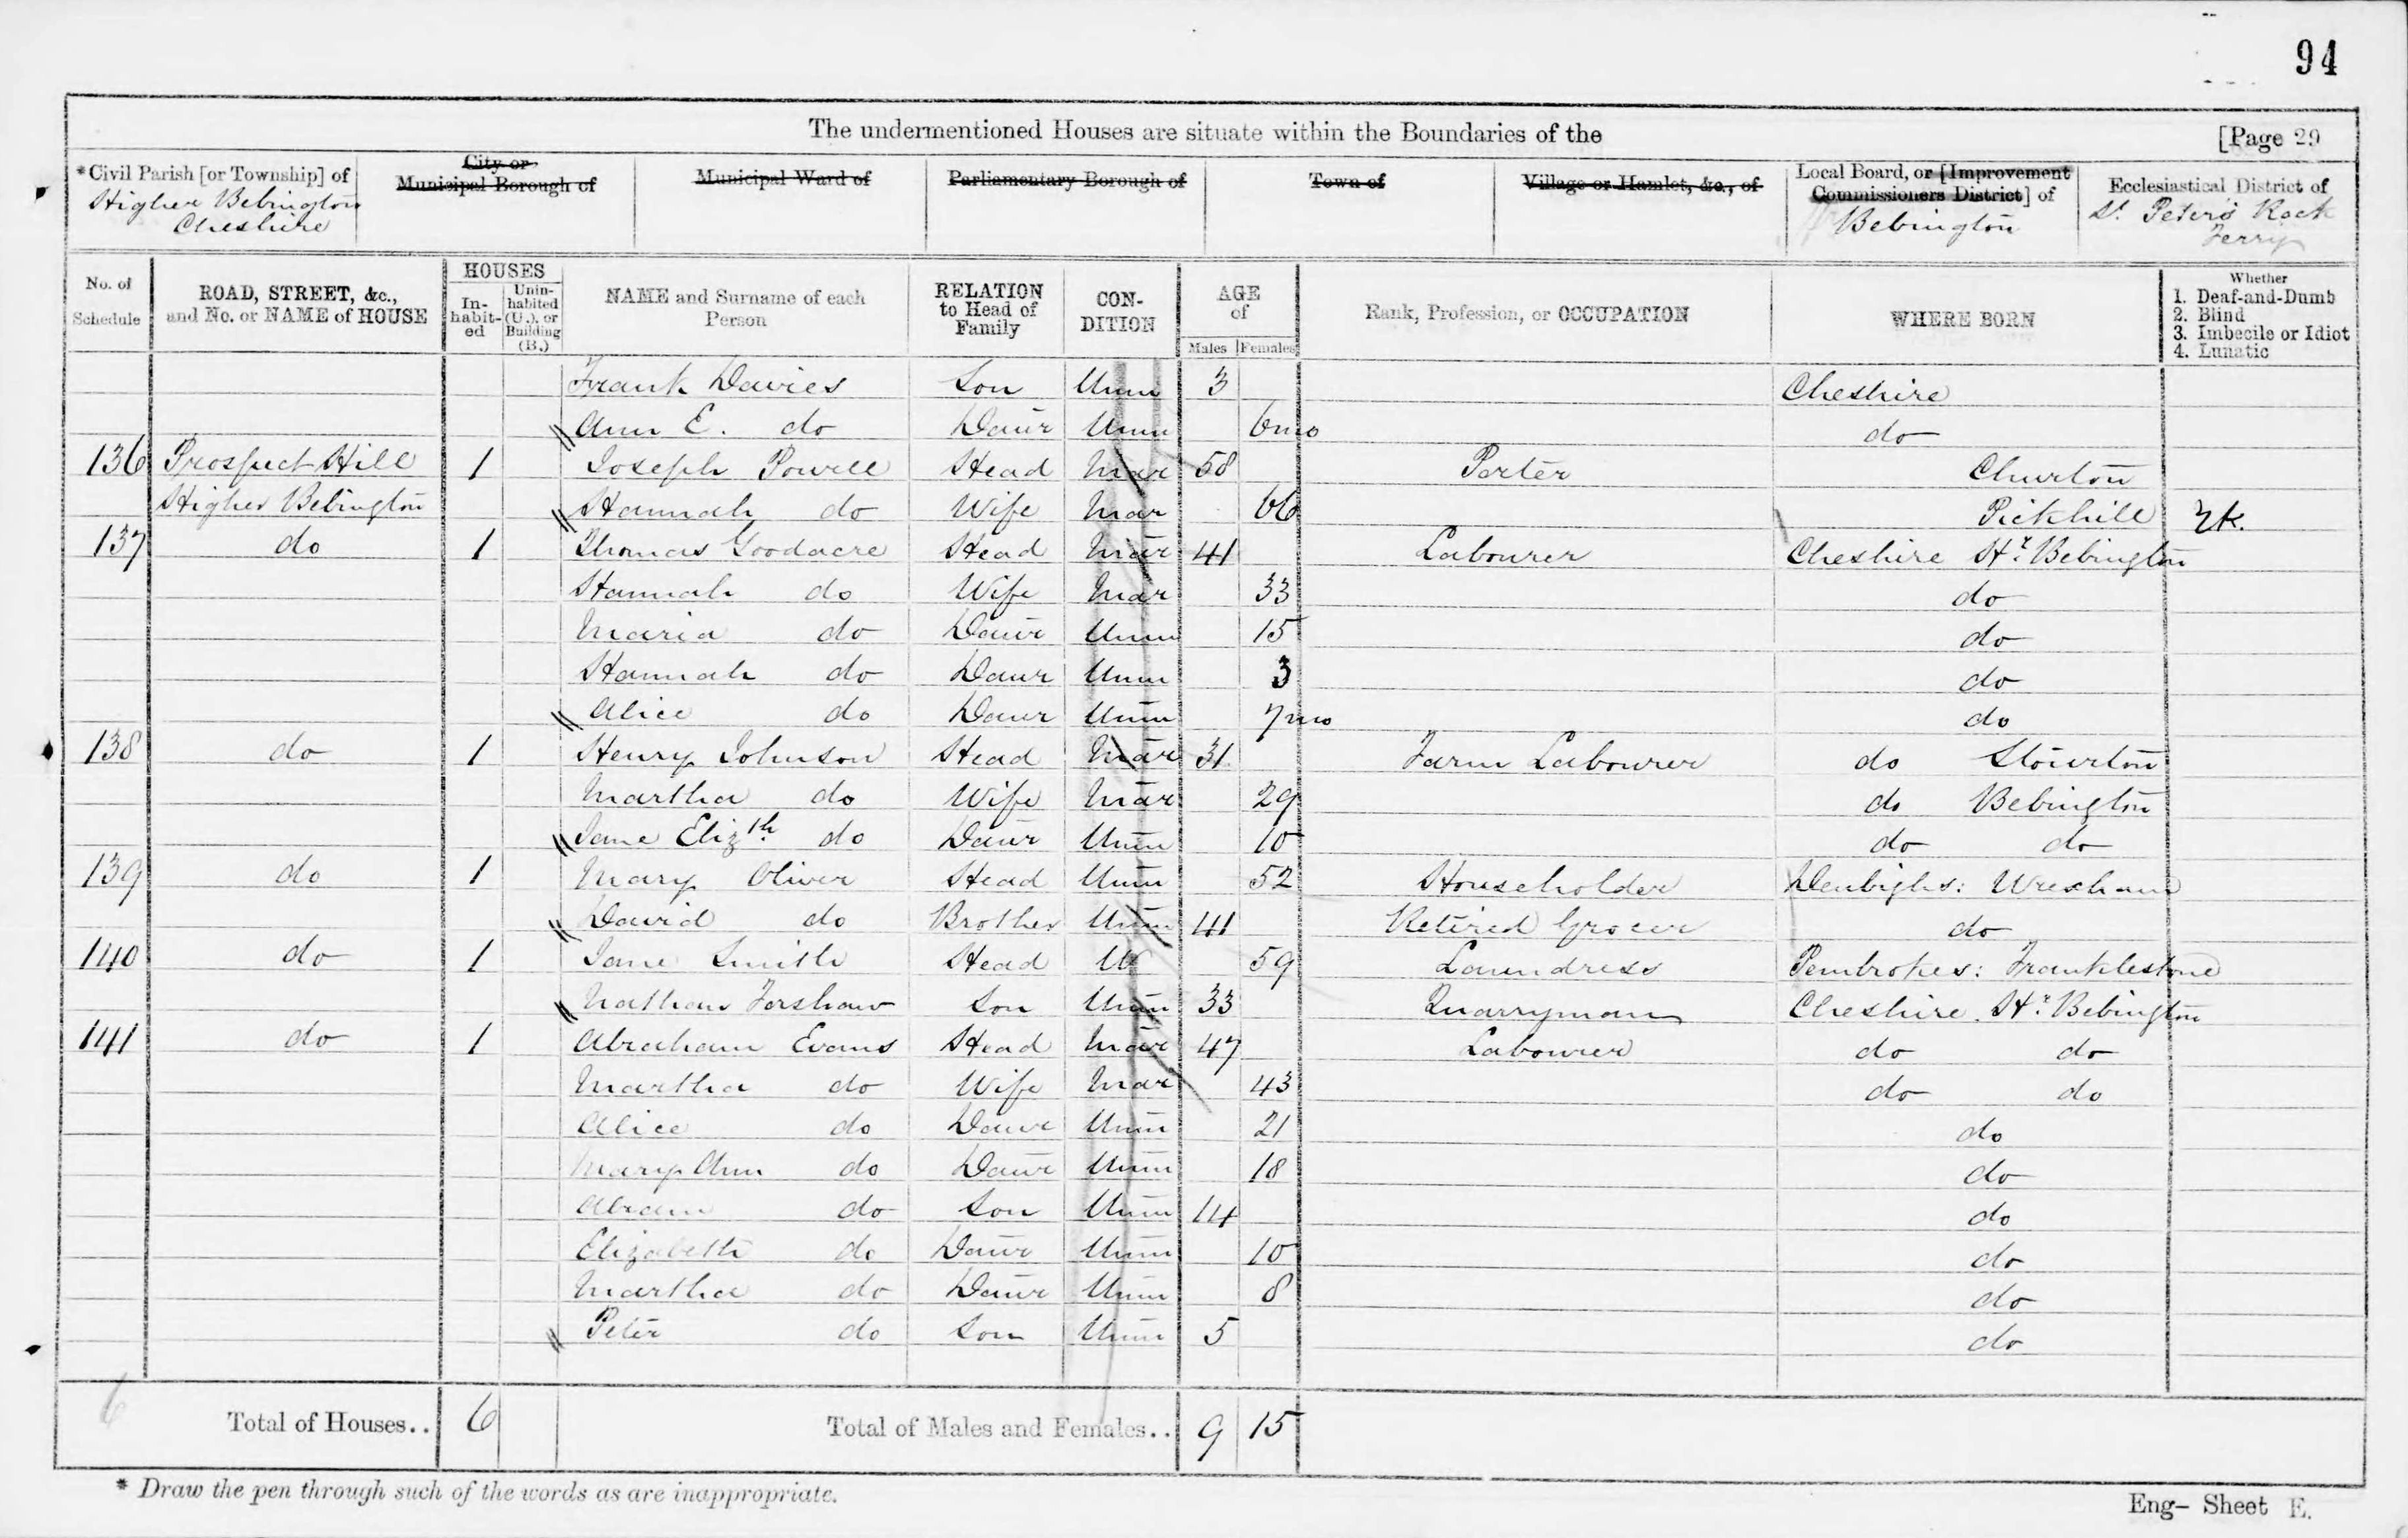 94
The undermentioned Houses are situate within the Boundaries of the [Page 29
*Civil Parish [or Township] of Higher Bebington Cheshire
City or Municipal Borough of
Municipal Ward of
Parliamentary Borough of
Town of
Village or Hamlet, &c., of
Local Board, or [Improvement Commissioners District] of Bebington
Ecclesiastical District of St Peter's Rock Ferry
No. of Schedule
ROAD, STREET, &c., and No. or NAME of HOUSE
HOUSES
In-habit-ed
Unin-habited (U.), or Building (B.)
NAME and Surname of each Person
RELATION to Head of Family
CON-DITION
AGE of
Males Females
Rank, Profession, or OCCUPATION
WHERE BORN
Whether
1. Deaf-and-Dumb
2. Blind
3. Imbecile or Idiot
4. Lunatic
Frank Davies Son Unm 3 Cheshire
Ann E. do Daur Unm 6mo do
136 Prospect Hill 1 Joseph Powell Head Mar 58 Porter Churton
Higher Bebington Hannah do Wife Mar 66 Pickhill
137 do 1 Thomas Goodacre Head Mar 41 Labourer Cheshire Hr. Bebington
Hannah do Wife Mar 33 do
Maria do Daur Unm 15 do
Hannah do Daur Unm 3 do
Alice do Daur Unm 7mo do
138 do 1 Henry Johnson Head Mar 31 Farm Labourer do Stourton
Martha do Wife Mar 29 do Bebington
Jane Elizth do Daur Unm 10 do do
139 do 1 Mary Oliver Head Unm 52 Householder Denbighs: Wrexham
David do Brother Unm 41 Retired Grocer do
140 do 1 Jane Smith Head W 59 Laundress Pembrokes: Franklestone
Nathan Forshaw Son Unm 33 Quarryman Cheshire. Hr. Bebington
141 do 1 Abraham Evans Head Mar 47 Labourer do do
Martha do Wife Mar 43 do do
Alice do Daur Unm 21 do
Mary Ann do Daur Unm 18 do
Abram do Son Unm 14 do
Elizabeth do Daur Unm 10 do
Martha do Daur Unm 8 do
Peter do Son Unm 5 do
6 Total of Houses.. 6 Total of Males and Females.. 9 15
* Draw the pen through such of the words as are inappropriate.
Eng- Sheet E.